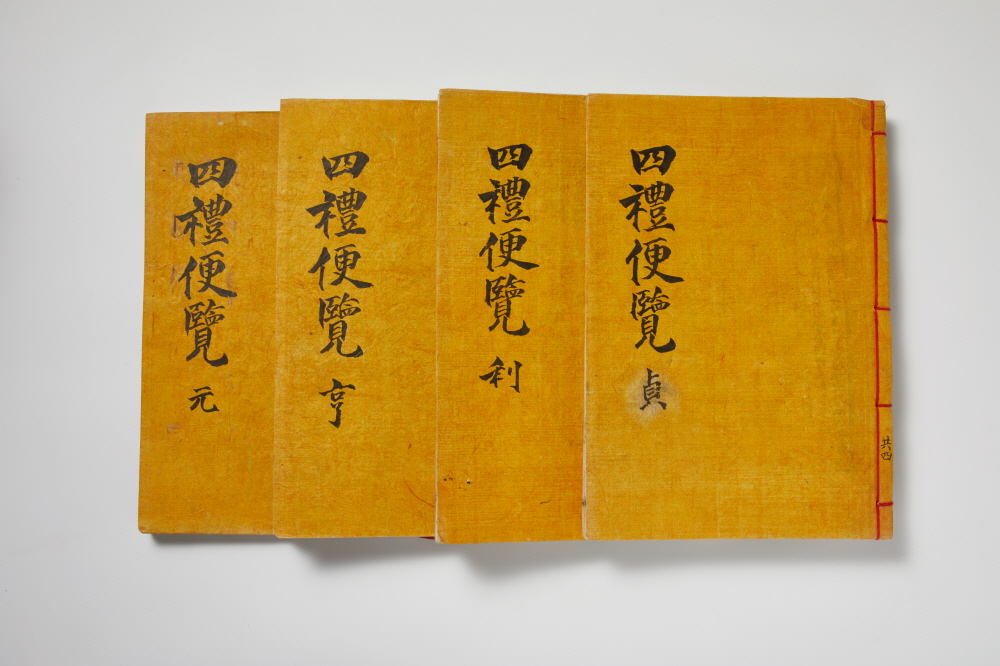 四禮便覽 元
四禮便覽 亨
四禮便覽 利
四禮便覽 貞
共四